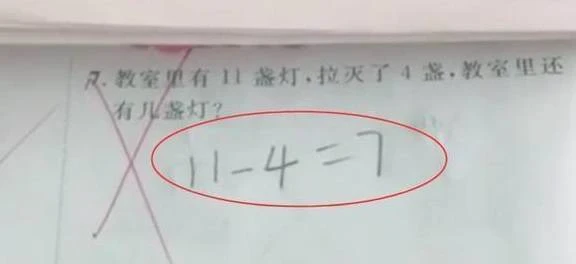 7.教室里有 11 盏灯,拉灭了 4 盏,教室里还
有几盏灯?
11-4=7